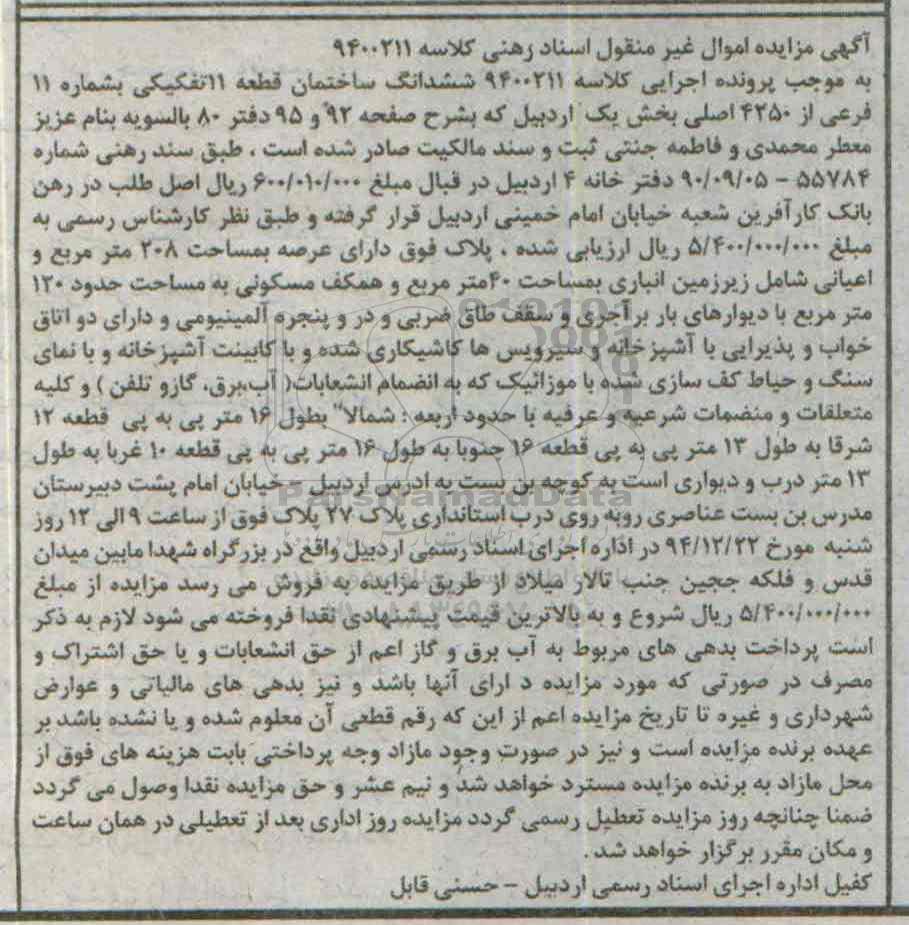 آگهی مزایده اموال غیر منقول اسناد رهنی کلاسه ۹۴۰۰۲۱۱
به موجب پرونده اجرایی کلاسه ۹۴۰۰۲۱۱ ششدانگ ساختمان قطعه ۱۱تفکیکی بشماره ۱۱
فرعی از ۴۲۵۰ اصلی بخش یک اردبیل که بشرح صفحه ۹۲ و ۹۵ دفتر ۸۰ بالسویه بنام عزیز
معطر محمدی و فاطمه جنتی ثبت و سند مالکیت صادر شده است . طبق سند رهنی شماره
۵۵۷۸۴ – ۹۰/۰۹/۰۵ دفتر خانه ۴ اردبیل در قبال مبلغ ۶۰۰/۰۱۰/۰۰۰ ریال اصل طلب در رهن
بانک کارآفرین شعبه خیابان امام خمینی اردبیل قرار گرفته و طبق نظر کارشناس رسمی به
مبلغ ۵/۴۰۰/۰۰۰/۰۰۰ ریال ارزیابی شده . پلاک فوق دارای عرصه بمساحت ۲۰۸ متر مربع و
اعیانی شامل زیرزمین انباری بمساحت ۴۰متر مربع و همکف مسکونی به مساحت حدود ۱۲۰
متر مربع با دیوارهای بار بر آجری و سقف طاق ضربی و در و پنجره آلمینیومی و دارای دو اتاق
خواب و پذیرایی با آشپزخانه و سیرویس ها کاشیکاری شده و با کابینت آشپزخانه و با نمای
سنگ و حیاط کف سازی شده با موزائیک که به انضمام انشعابات( آب،برق، گازو تلفن ) و کلیه
متعلقات و منضمات شرعیه و عرفیه با حدود اربعه : شمالا" بطول ۱۶ متر پی به پی قطعه ۱۲
شرقا به طول ۱۳ متر پی به پی قطعه ۱۶ جنوبا به طول ۱۶ متر پی به پی قطعه ۱۰ غربا به طول
۱۳ متر درب و دیواری است به کوچه بن بست به ادرس اردبیل – خیابان امام پشت دبیرستان
مدرس بن بست عناصری روبه روی درب استانداری پلاک ۲۷ پلاک فوق از ساعت ۹ الی ۱۲ روز
شنبه مورخ ۹۴/۱۲/۲۲ در اداره اجرای اسناد رسمی اردبیل واقع در بزرگراه شهدا مابین میدان
قدس و فلکه ججین جنب تالار میلاد از طریق مزایده به فروش می رسد مزایده از مبلغ
۵/۴۰۰/۰۰۰/۰۰۰ ریال شروع و به بالاترین قیمت پیشنهادی نقدا فروخته می شود لازم به ذکر
است پرداخت بدهی های مربوط به آب برق و گاز اعم از حق انشعابات و یا حق اشتراک و
مصرف در صورتی که مورد مزایده د ارای آنها باشد و نیز بدهی های مالیاتی و عوارض
شهرداری و غیره تا تاریخ مزایده اعم از این که رقم قطعی آن معلوم شده و یا نشده باشد بر
عهده برنده مزایده است و نیز در صورت وجود مازاد وجه پرداختی بابت هزینه های فوق از
محل مازاد به برنده مزایده مسترد خواهد شد و نیم عشر و حق مزایده نقدا وصول می گردد
ضمنا چنانچه روز مزایده تعطیل رسمی گردد مزایده روز اداری بعد از تعطیلی در همان ساعت
و مکان مقرر برگزار خواهد شد .
کفیل اداره اجرای اسناد رسمی اردبیل – حسنی قابل
ParsNamadData